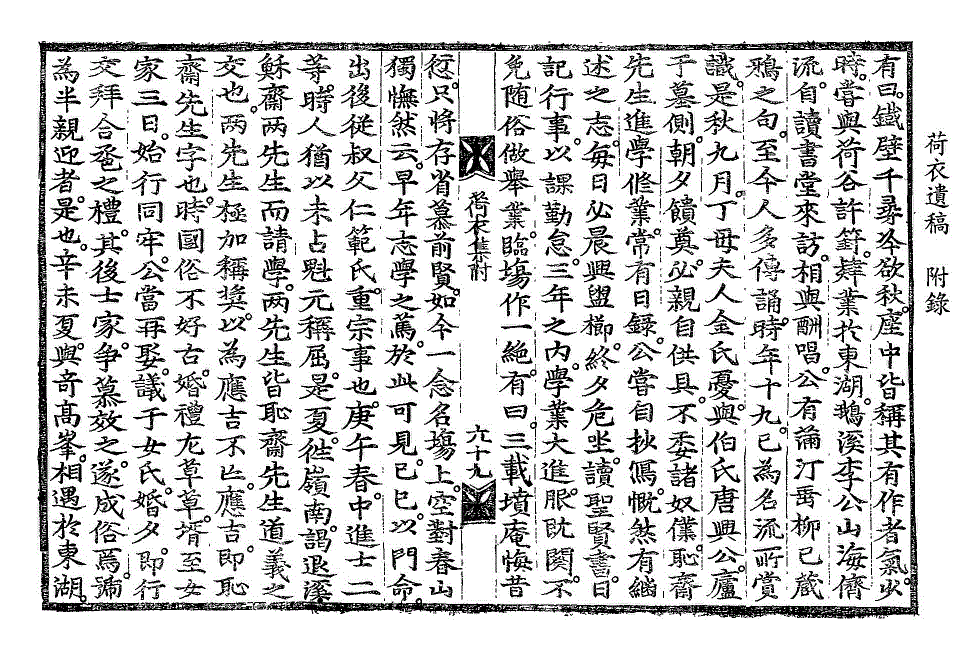 荷衣遺稿　附錄
有曰。鐵壁千尋爻欲秋。座中皆稱其有作者氣。少
時。嘗與荷谷許篈。肄業於東湖。鵝溪李公山海儕
流。自讀書堂來訪。相與酬唱。公有滿汀禹柳已藏
鴉之句。至今人多傳誦。時年十九。已爲名流所賞
識。是秋九月。丁母夫人金氏憂。與伯氏唐興公。廬
于墓側。朝夕饋奠。必親自供具。不委諸奴僕。恥齋
先生進學修業。常有日錄。公嘗自抄寫。慨然有繼
述之志。每日必晨興盥櫛。終夕危坐。讀聖賢書。日
記行事。以課勤怠。三年之內。學業大進。脈旣闋。不
免随俗做舉業。臨塲作一絶。有曰。三載墳庵悔昔
荷衣集附
六十九
愆。只將存省慕前賢。如今一念名塲上。空對春山
獨憮然云。早年志學之篤。於此可見已。己巳。以門命。
出後從叔父仁範氏。重宗事也。庚午春。中進士二
等。時人猶以未占魁元稱屈。是夏。徃嶺南。謁退溪
穌齋兩先生而請學。兩先生皆恥齋先生道義之
交也。兩先生極加稱奬。以爲應吉不亡。應吉卽恥
齋先生字也。時國俗不好古。婚禮尤草草。壻至女
家三日。始行同牢。公當再娶。議于女氏。婚夕。卽行
交拜合巹之禮。其後士家爭慕效之。遂成俗焉。號
爲半親迎者。是也。辛未夏。與奇高峯。相遇於東湖。